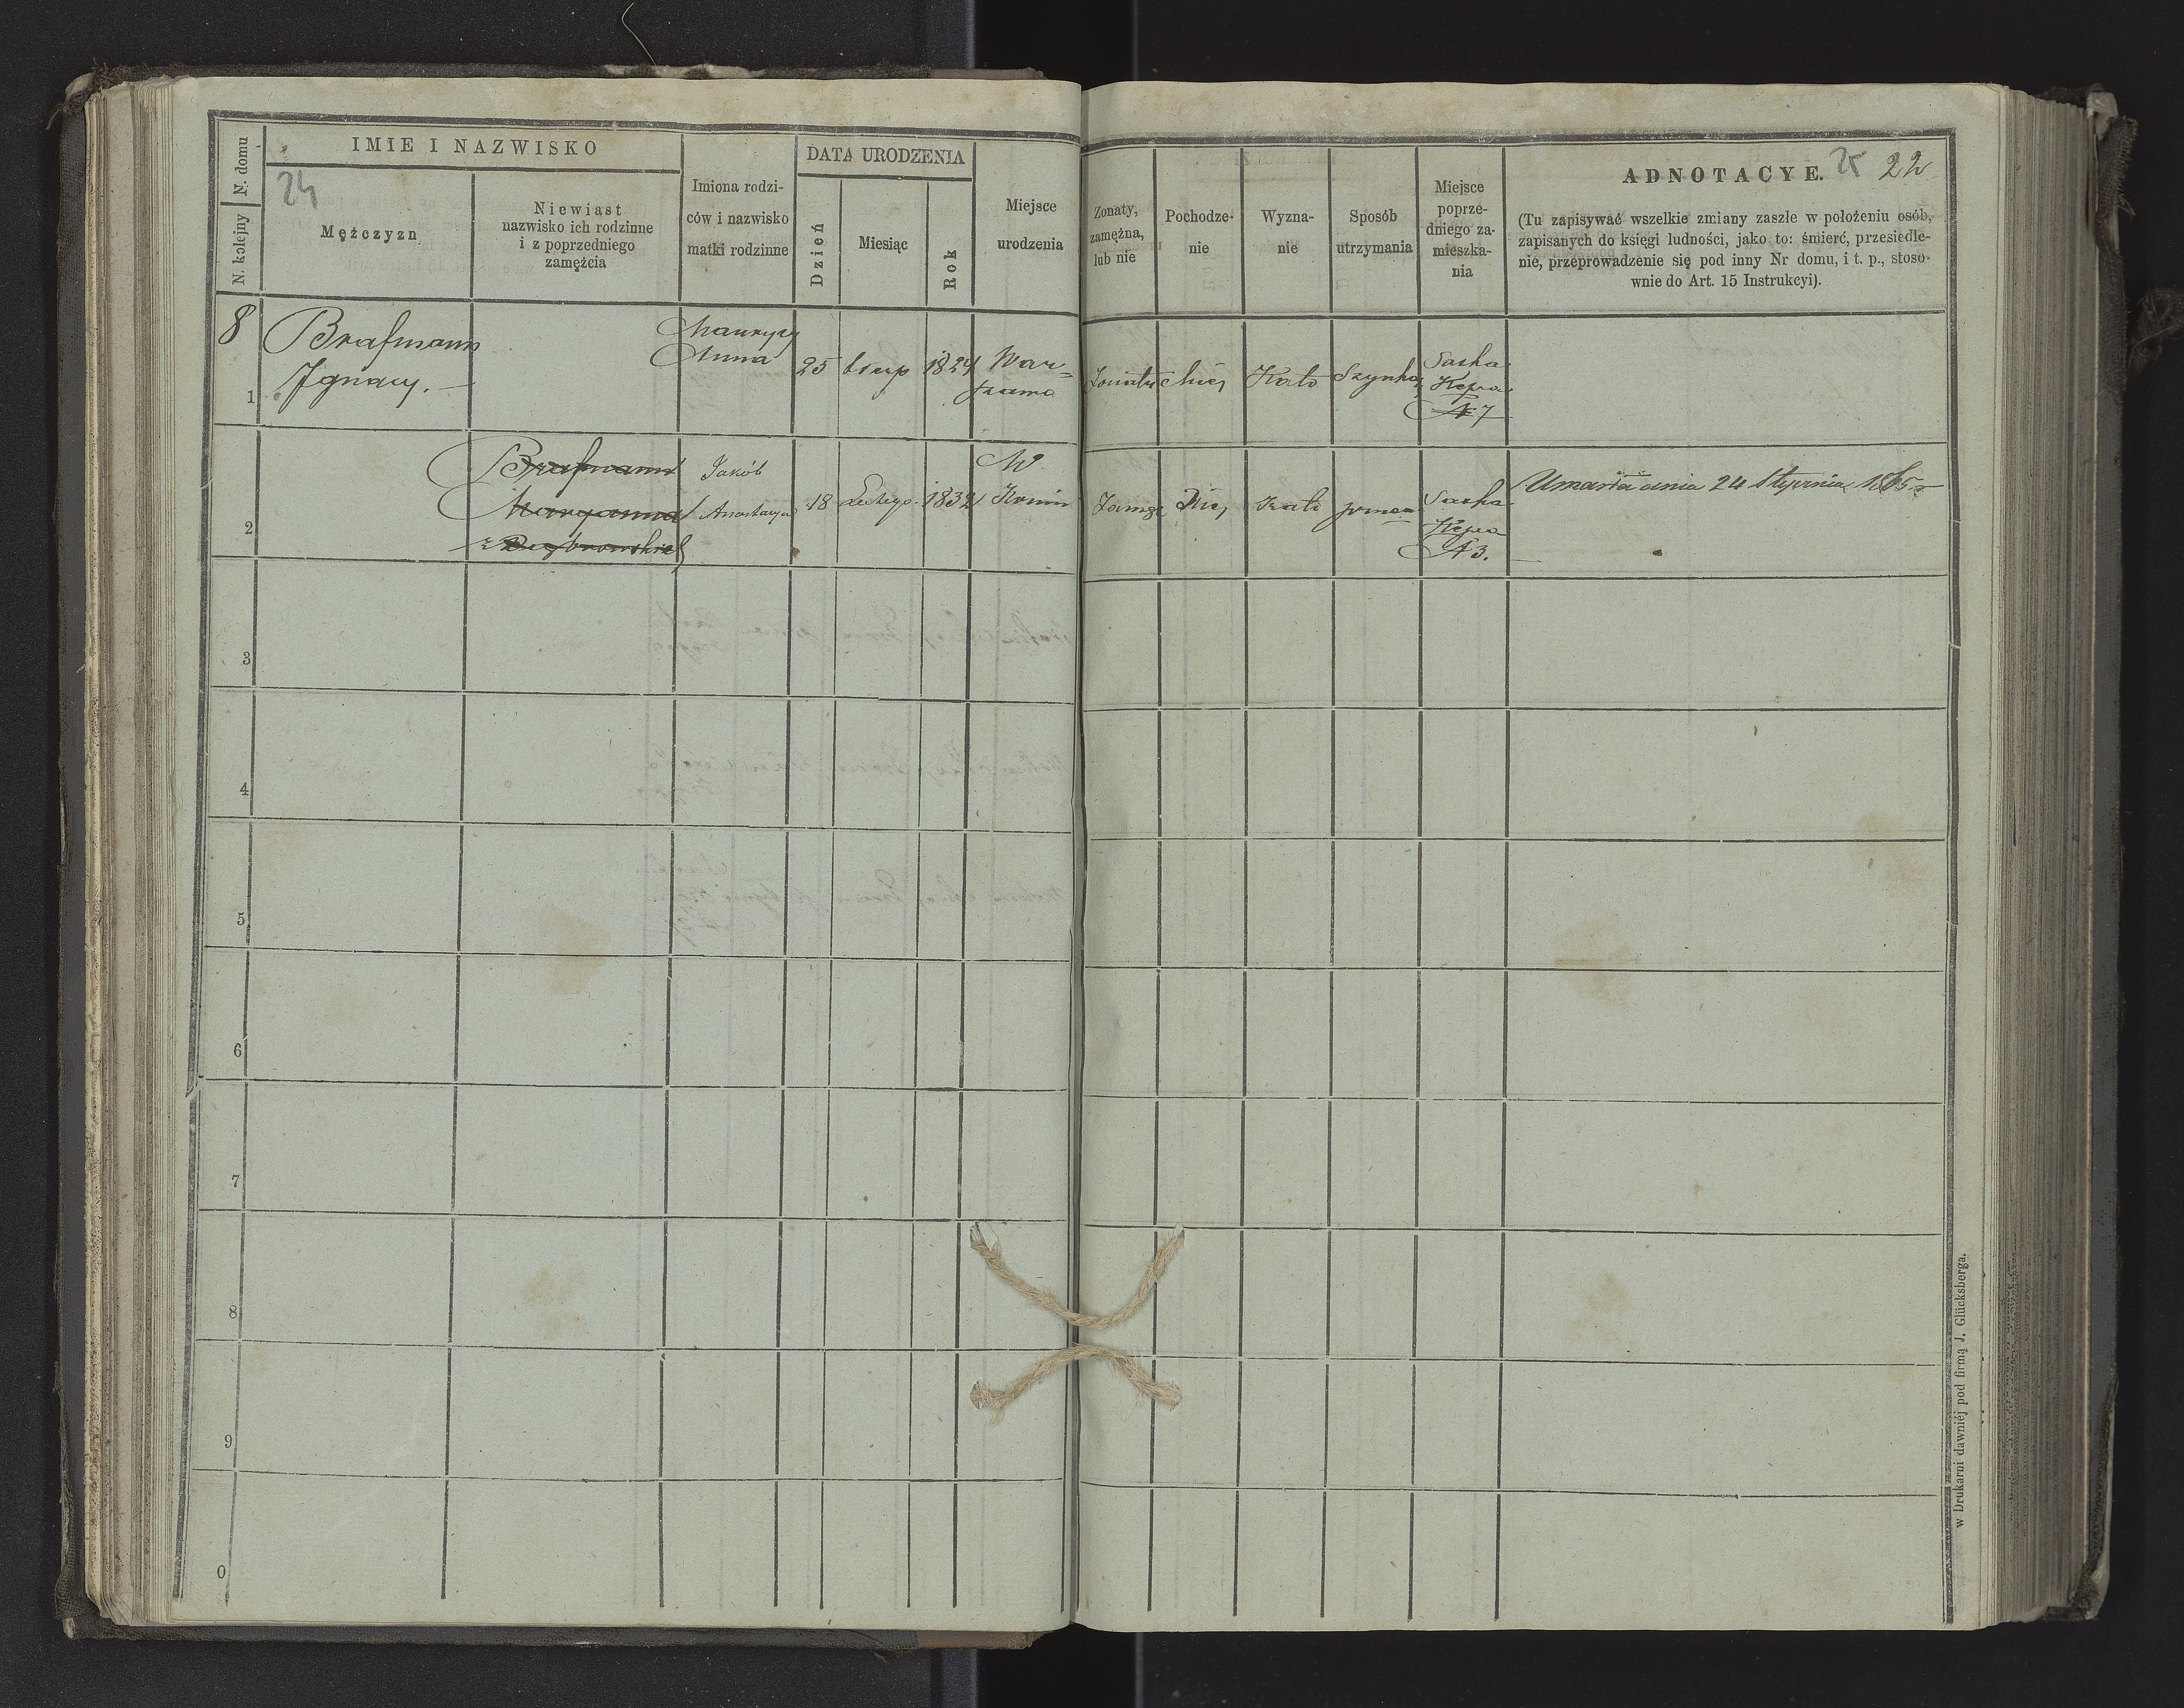 N. domu
N. kolejny
IMIE I NAZWISKO
24
Mężczyzn
Niewiast
nazwisko ich rodzinne
i z poprzedniego
zamęźcia
Imiona rodzi-
ców i nazwisko
matki rodzinne
DATA URODZENIA
Dzień
Miesiąc
Rok
Miejsce
urodzenia
Żonaty,
zamężna,
lub nie
Pochodze-
nie
Wyzna-
nie
Sposób
utrzymania
Miejsce
poprze-
dniego za-
mieszka-
nia
ADNOTACYE.
25 22
(Tu zapisywać wszelkie zmiany zaszłe w położeniu osób,
zapisanych do księgi ludności, jako to: śmierć, przesiedle-
nie, przeprowadzenie się pod inny Nr domu, i t. p., stoso-
wnie do Art. 15 Instrukcyi).
8
1
Brafmann
Ignacy.
Maurycy
Anna
25
1824
War=
szawa
Żonaty
Kato
Szynka
Saska
Kępa
N 7
2
Brafmann
Maryanna
z
Jakób
Anastazya
18
Lutego
1832
W
Konin
Zamęż
Kato
Saska
Kępa
N 3.
Umarła dnia 24 Stycznia 1865 r
3
4
5
6
7
8
9
0
w Drukarni dawniéj pod firmą J. Glücksberga.